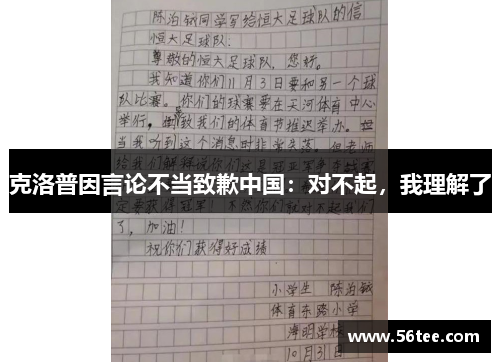 陈泊铖同学写给恒大足球队的信
恒大足球队:
尊敬的恒大足球队,您好。
我知道你们11月3日要和另一个球
队比赛。你们的球赛要在天河体育中心
举行,导致我们的体育节推迟举办。但
当我听到这个消息时非常失落。但老师
克洛普因言论不当致歉中国:对不起,我理解了
定要获得冠军!不然你们就对不起我们
了,加油!
祝你们获得好成绩
小学生 陈泊铖
体育东路小学
海明学校
10月31日
www.56tee.com